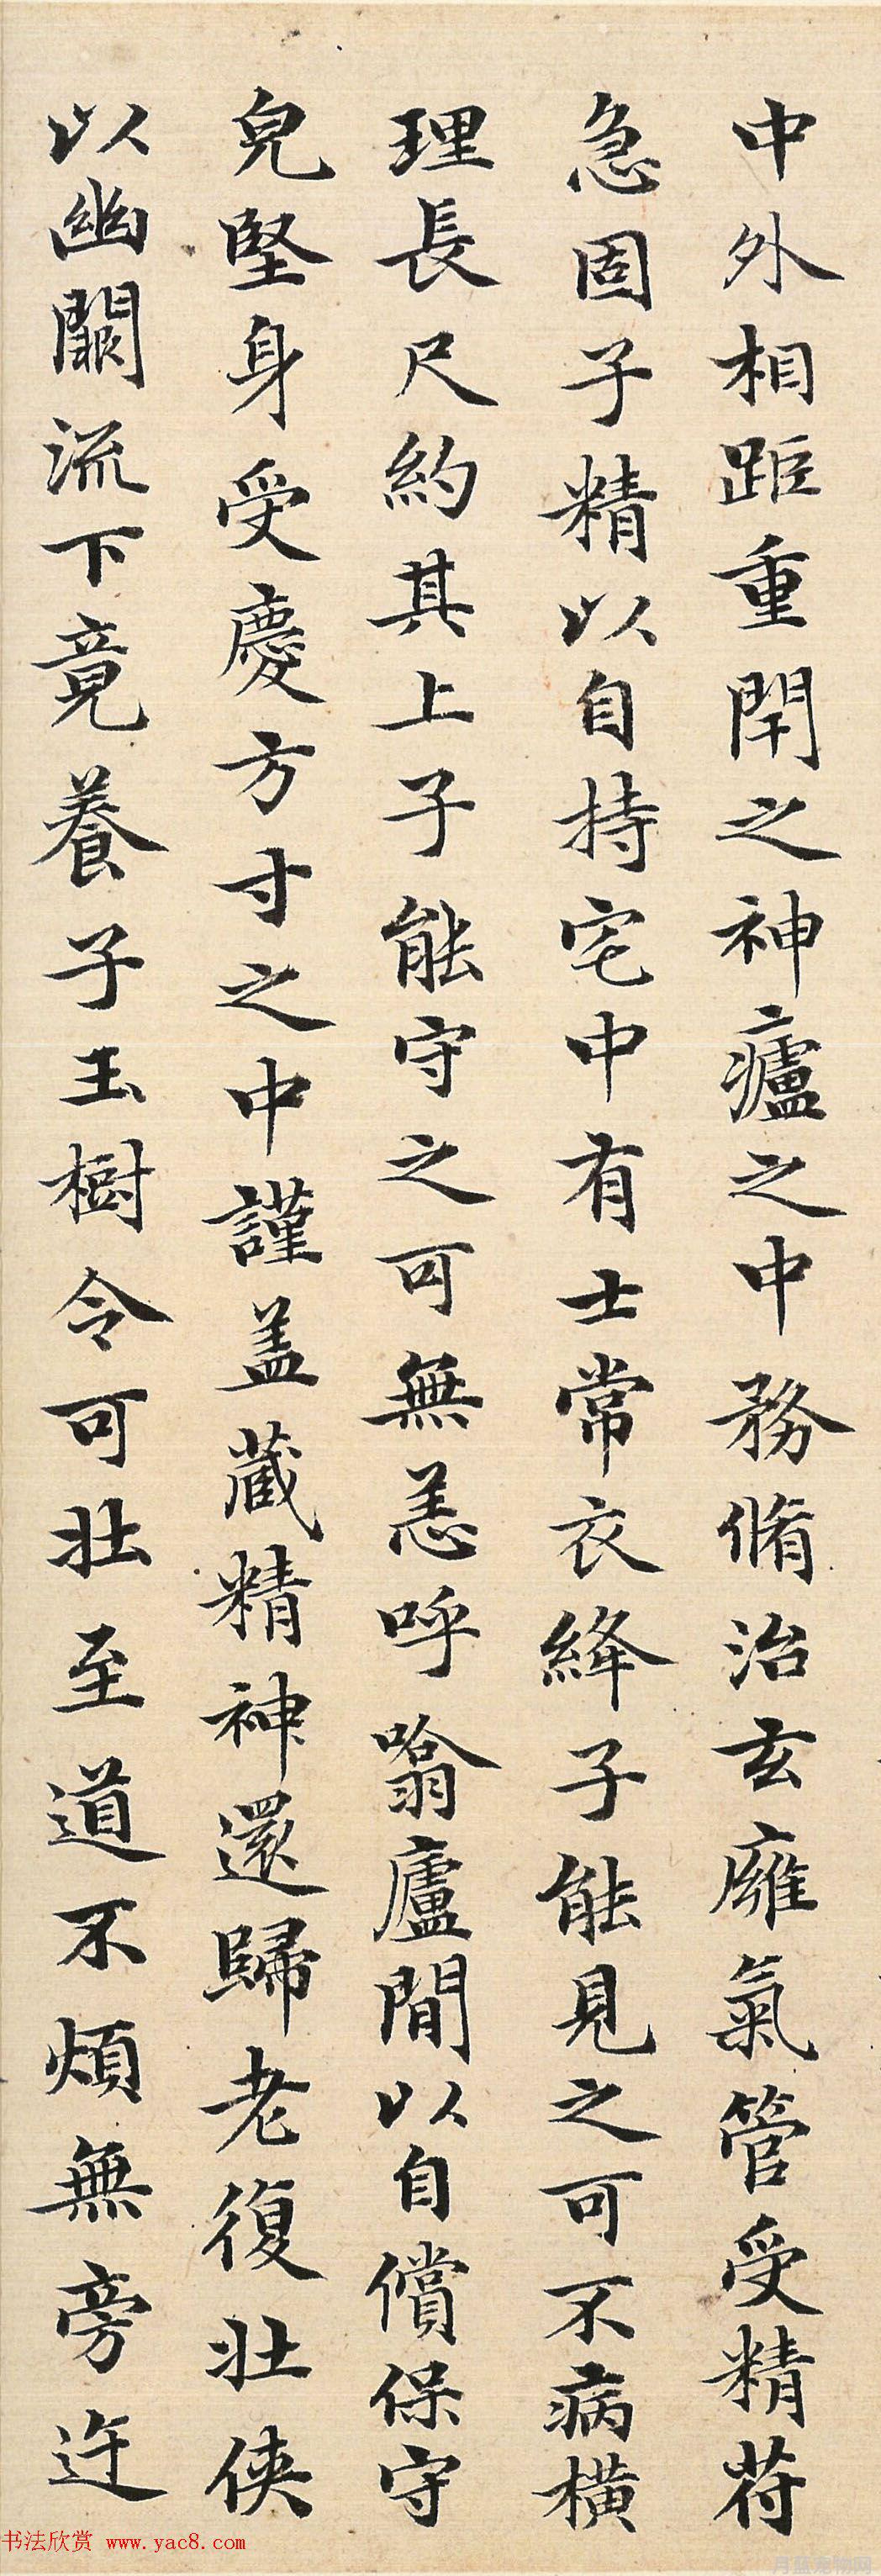 中外相距重閇之神癧之中務脩治玄廱氣管受精苻
急固子精以自持宅中有士常衣絳子能見之可不病橫
理長尺約其上子能守之可無恙呼噏廬間以自償保守
皃堅身受慶方寸之中謹盖藏精神還歸老復壯俠
以幽闕流下竟養子玉樹令可壯至道不煩無旁迕
书法欣赏 www.yac8.com